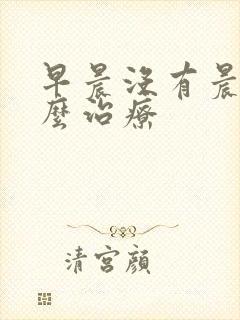 早晨没有晨
麼治療
清宮顔